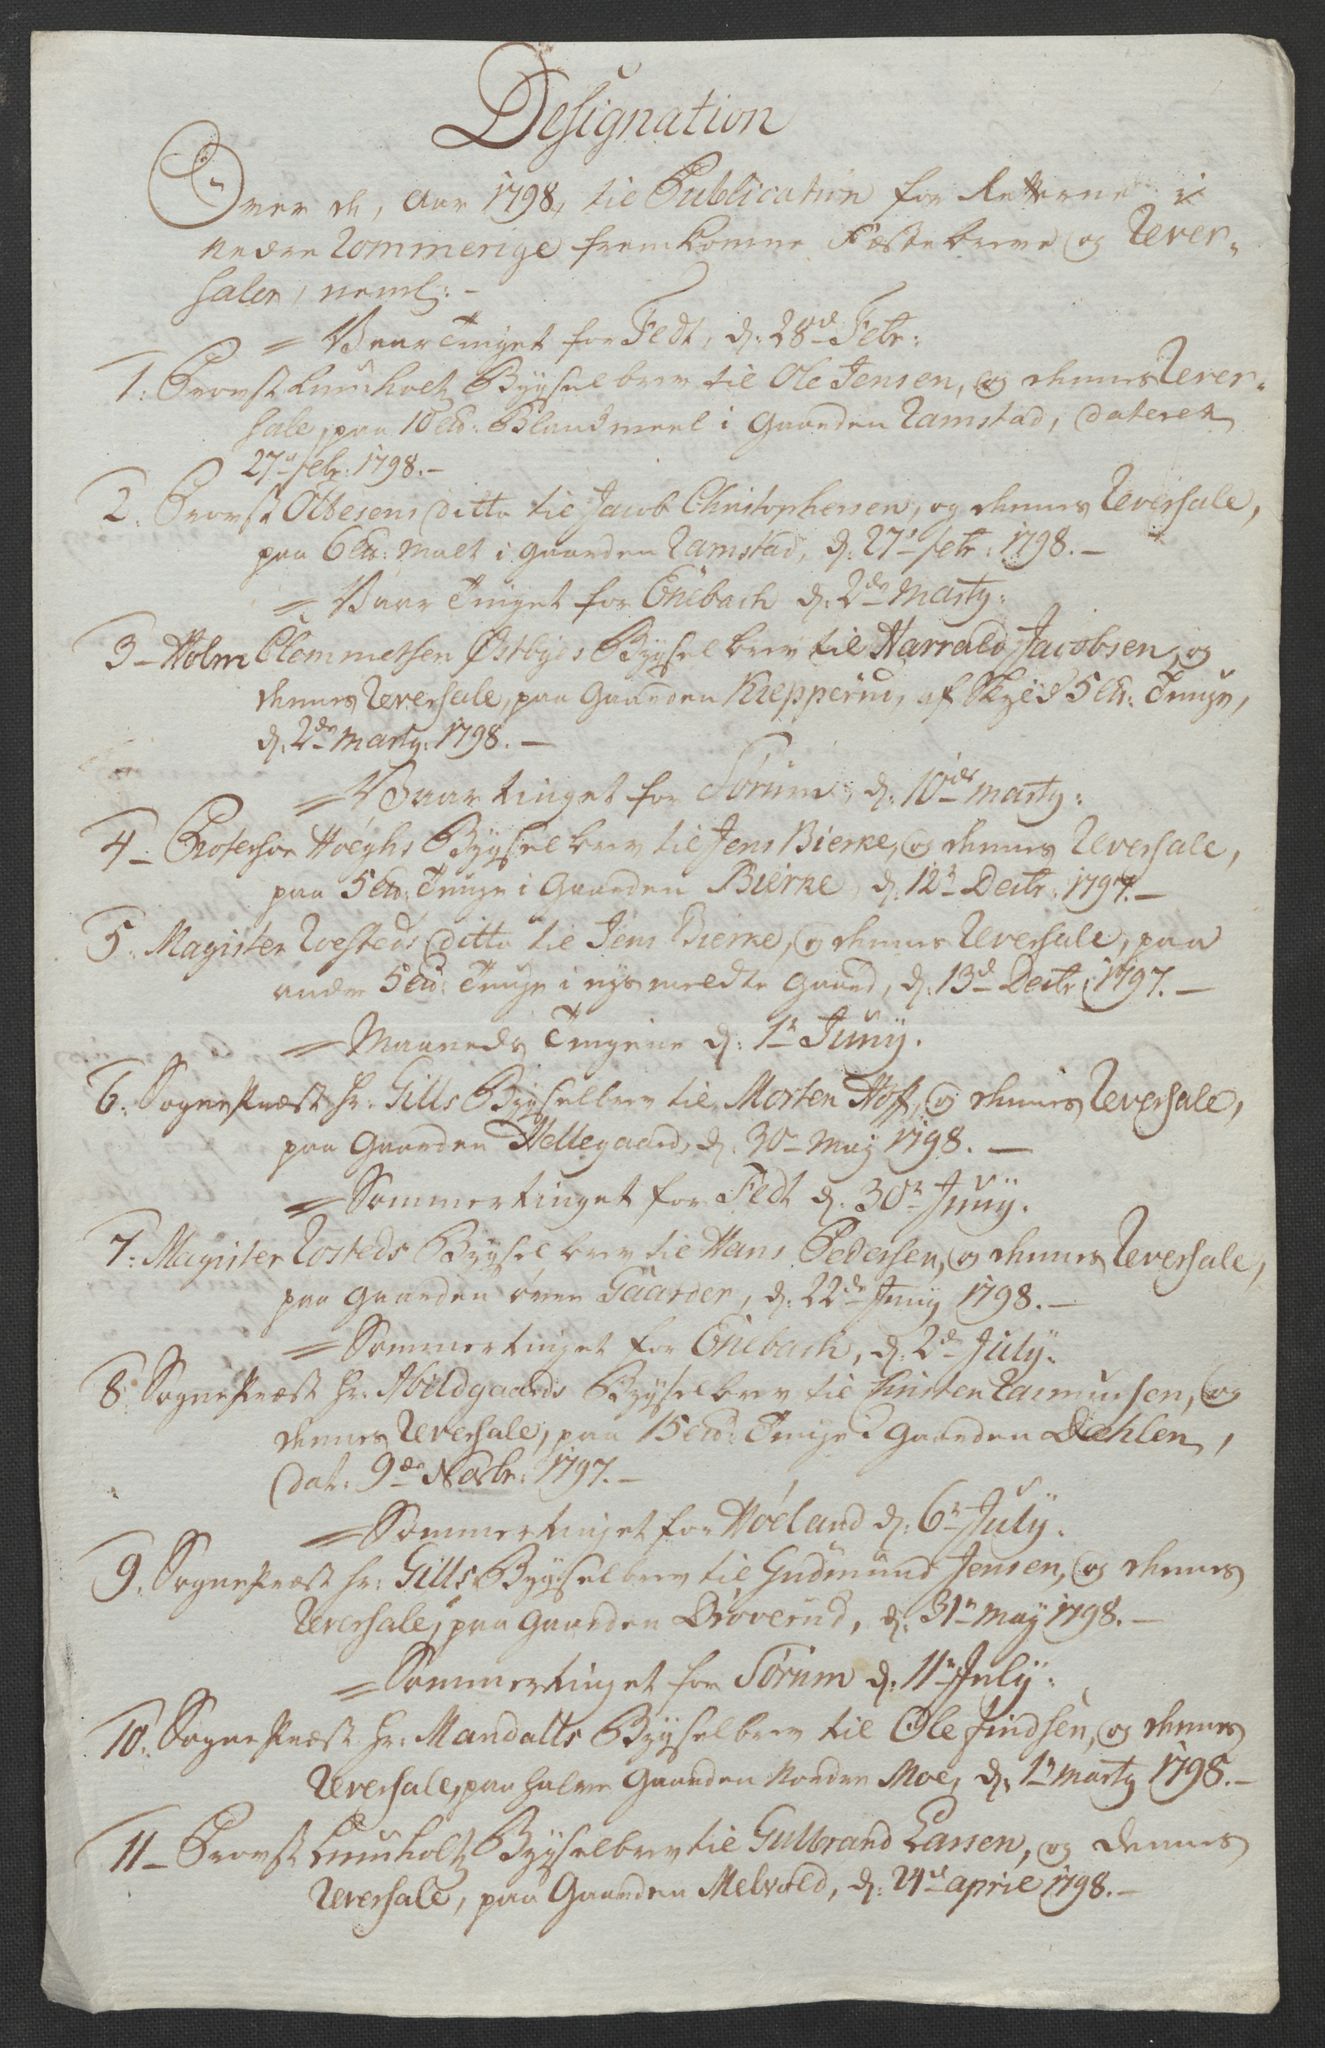 Designation
Over de, Aar 1798, til Publication for Retterne i
nedre Rommerige fremkomne Fæstebreve og Rever-
saler, neml: -
= Vaar Tinget for Fedt, d: 28de Febr:
1. Provst Bygselbrev til Ole Jensen, og dennes Rever-
sale, paa 10 Blandmeel i Gaarden Ramstad, dateret
27de febr: 1798. -
2. Provst Ottesens ditto til Jacob Christophersen, og dennes Reversale,
paa 6 malt i gaarden Ramstad, d: 27de febr: 1798. -
= Vaar Tinget for Enebach d: 2den Marty:
3 - Holm Clemmetsen Østbyes Bygselbrev til Harrald Jacobsen, og
dennes Reversale, paa Gaarden Knepperud, af Skyld 5 Tunge,
d: 2den Marty: 1798. -
= Vaartinget for Sørum, d: 10de Marty:
4 - Profesor Høeghs Bygselbrev til Jens Bierke, og dennes Reversale,
paa 5 Tunge i Gaarden Bierke, d: 12te Decbr: 1797. -
5. Magister Rosteds ditto til Jens Bierke, og dennes Reversale, paa
andre 5 Tunge i nysmeldte Gaard, d: 13de Decbr: 1797. -
= Maaneds Tingene d: 1te Juny.
6. Sognepræst Hr: Gills Bygselbrev til Morten Hoff, og dennes Reversale,
paa Gaarden Hellegaard, d: 30te May 1798. -
= Sommertinget for Fedt d: 30te Juny.
7. Magister Rosteds Bygselbrev til Hans Pedersen, og dennes Reversale,
paa Gaarden øvre Gaarder, d: 22de Juny 1798. -
= Sommertinget for Enebach, d: 2de July.
8 Sognepræst Hr: Abildgaards Bygselbrev til Christen Rasmussen, og
dennes Reversale, paa 15 Tunge i Gaarden Dahlen,
dat: 9de Novbr: 1797. -
= Sommertinget for Høland d: 6te July.
9. Sognepræst Hr: Gills Bygselbrev til Gudmund Jensen, og dennes
Reversale, paa Gaarden Drøverud, d: 31te May 1798. -
= Sommertinget for Sørum d: 11te July:
10. Sognepræst Hr: Mandalls Bygselbrev til Ole Findsen, og dennes
Reversale, paa halve Gaarden Nordre Moe, d: 1te Marty 1798. -
11 - Provst Bygselbrev til Gulbrand Larsen, og dennes
Reversale, paa Gaarden Melvold, d: 24de april 1798. -